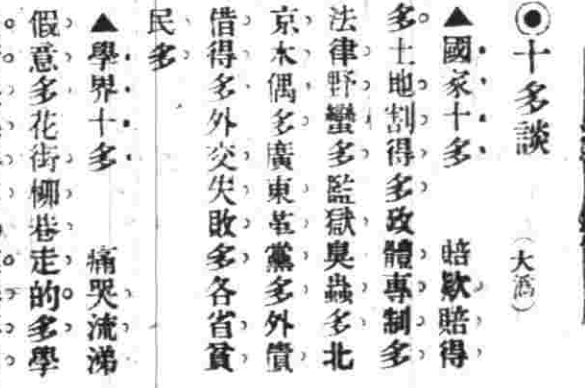 ◉十多談 （大）
▲國家十多 賠欵賠得
多土地割得多政體專制多
法律野蠻多監獄臭蟲多北
京木偶多廣東革黨多外債
借得多外交失敗多各省貧
民多
▲學界十多 痛哭流涕
假意多花街柳巷走的多學